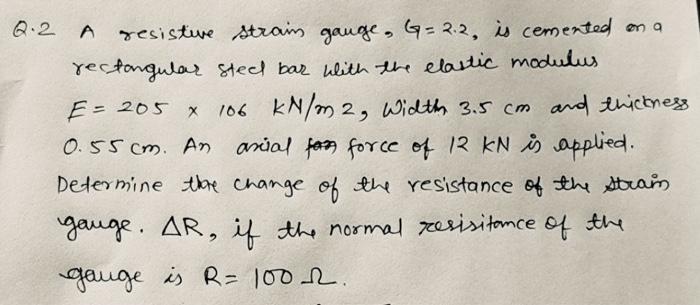 Q.2 A resistive strain gauge, G = 2.2, is cemented on a
rectangular steel bar with the elastic modulus
E = 205 x 106 kN/m 2, Width 3.5 cm and thickness
0.55 cm. An axial force of 12 kN is applied.
Determine the change of the resistance of the strain
gauge. ΔR, if the normal resisitance of the
gauge is R = 100 Ω.